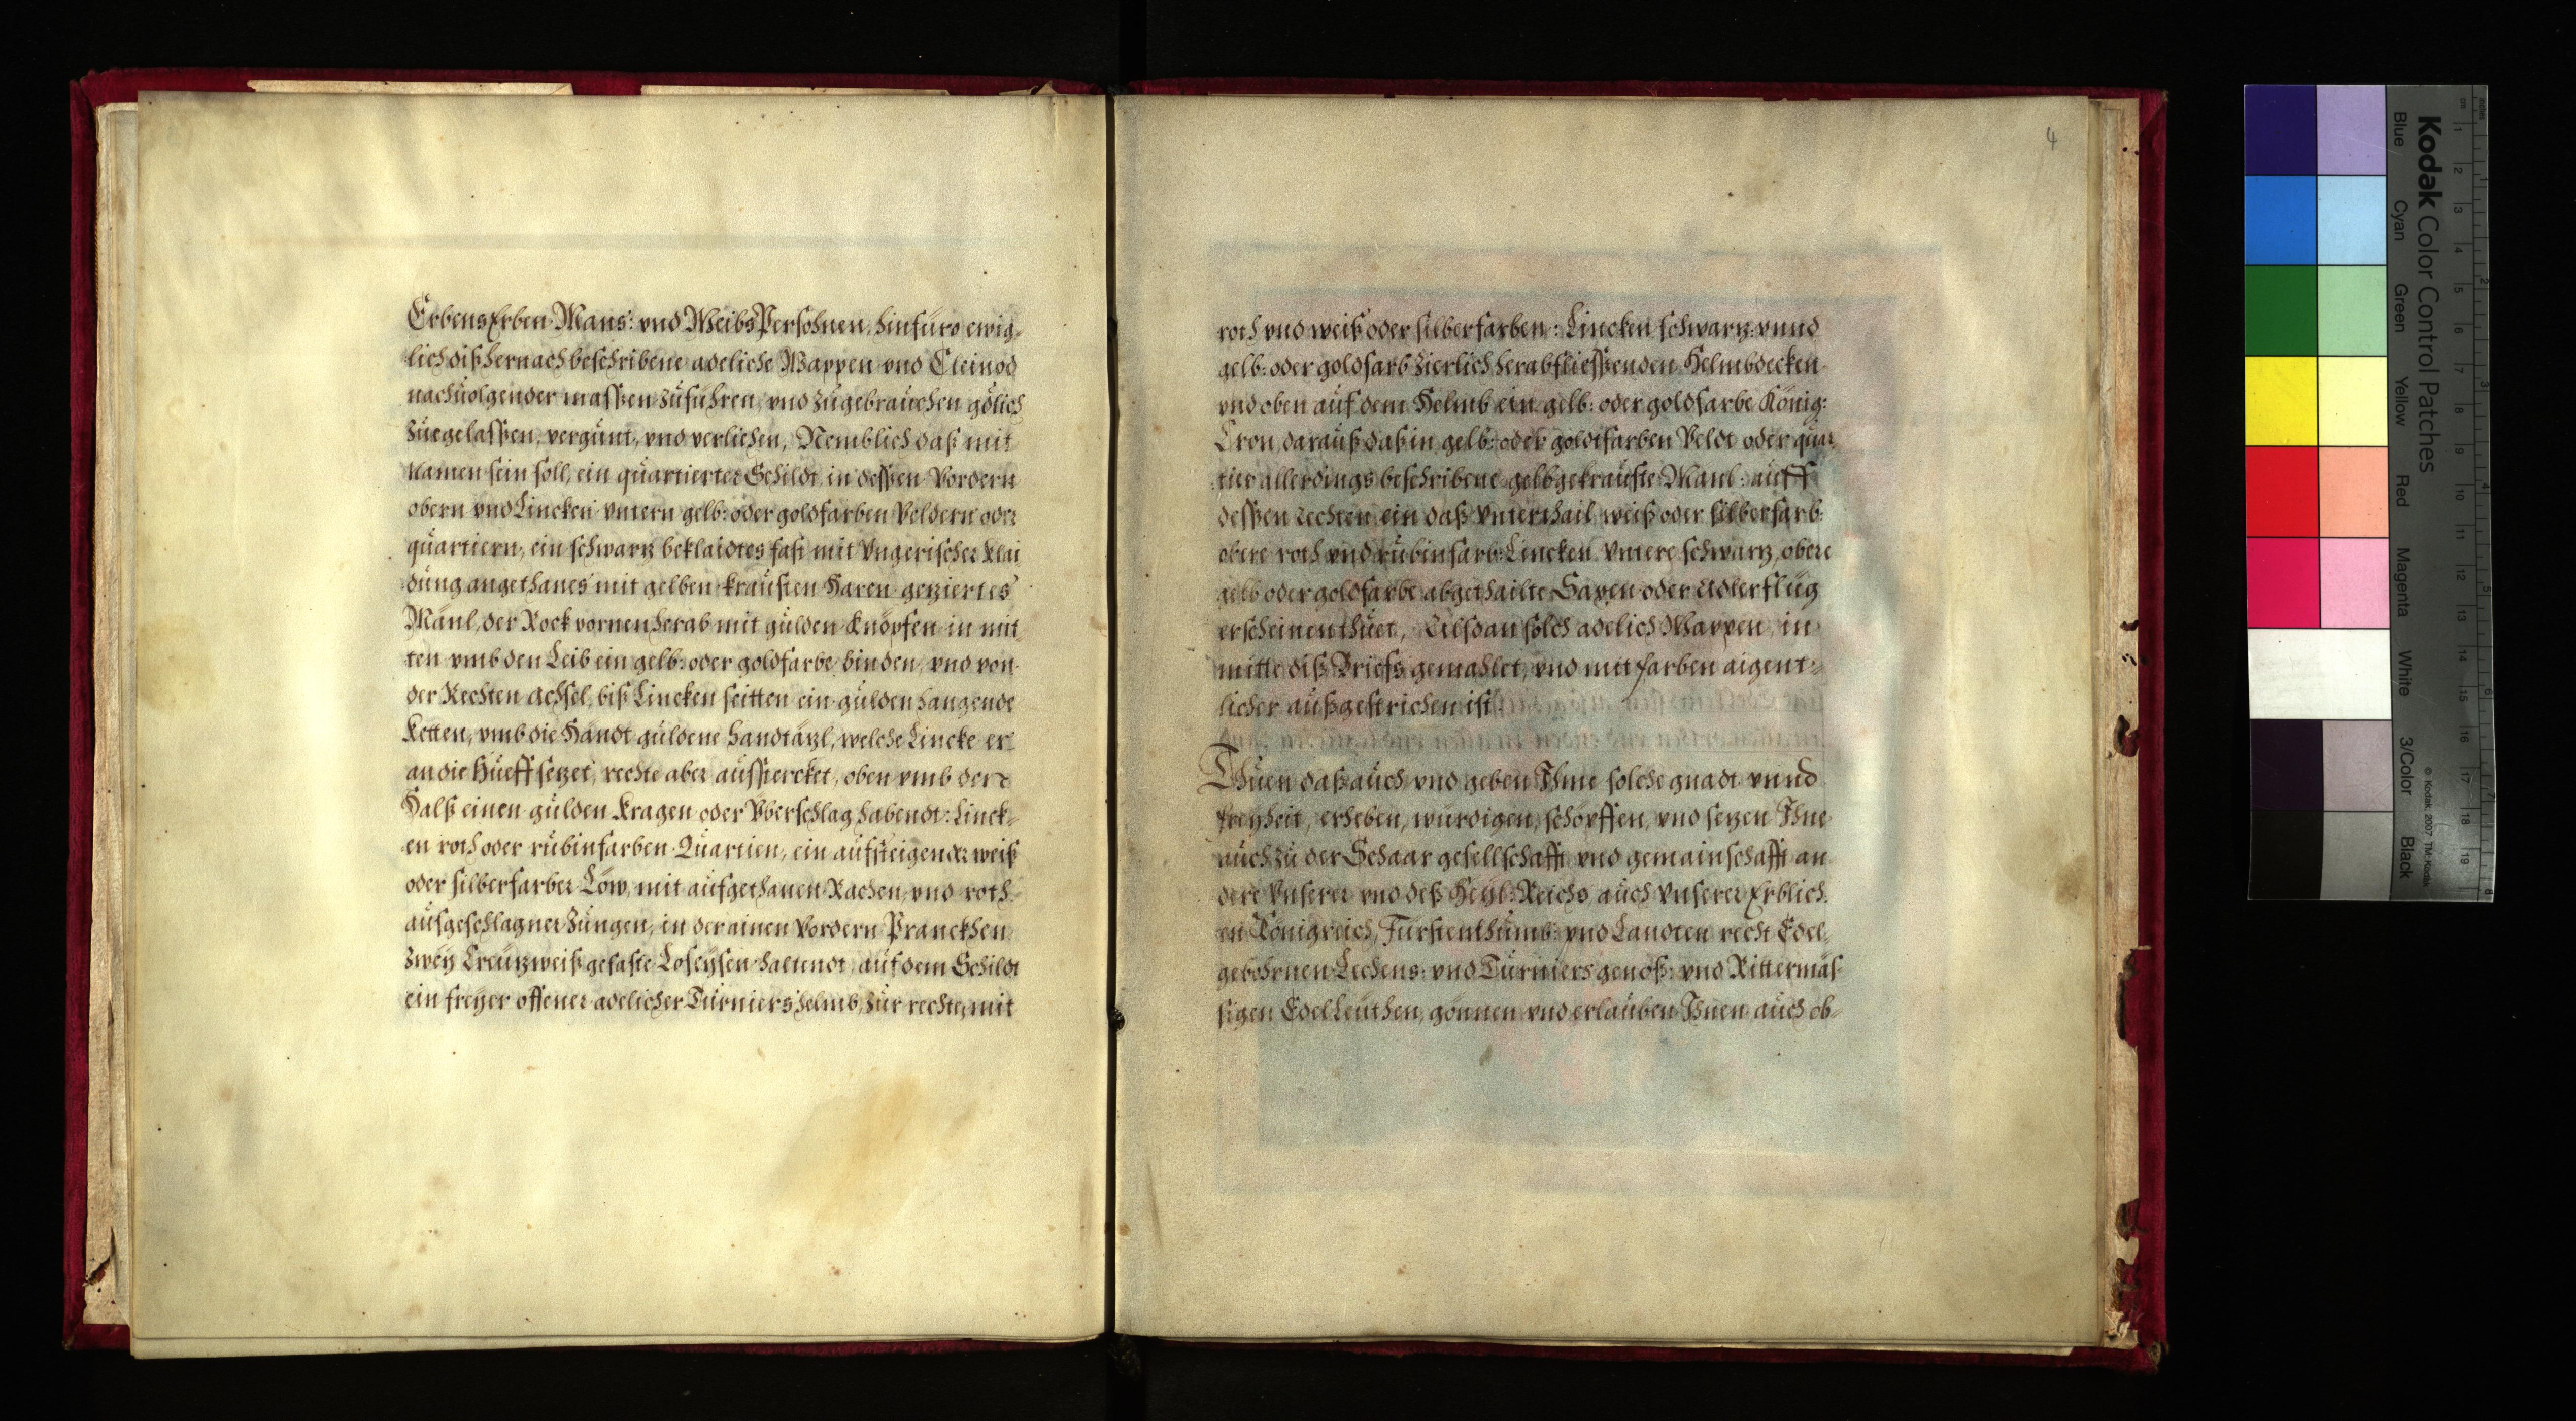 Erbens Erben Mans: vnd Weibs Persohnen, hinfüro ewig-
lich diß hernach beschribene adeliche Wappen vnd Cleinod
nachuolgender massen zuführen, vnd zugebrauchen gölich
zuegelassen, vergünt, vnd verliehen, Nemblich daß mit
Namen sein soll, ein quartierter Schildt, in dessen Vordern
obern vnd Lincken vntern gelb: oder goldfarben Veldern oder
quartiern, ein schwartz beklaidtes fast mit Vngerischer Klai
dung angethanes mit gelben krausten Haren geziertes
Mänl, der Rock vornen herab mit gulden Knöpfen in mit
ten vmb den Leib ein gelb: oder goldfarbe binden, vnd von
der Rechten Achsel, biß Lincken seitten ein gulden hangende
Ketten, vmb die Händt guldene handtäzl, welche Lincke er
an die Hüeff setzet, rechte aber ausstercket, oben vmb dere
Halß einen gulden Kragen oder Vberschlag habendt: Linck-
en roth oder rubinfarben Quartien, ein aufsteigender weiß
oder silberfarber Löw, mit aufgethanen Rachen, vnd roth
ausgeschlagner Zungen, in der ainen Vordern Pranckhen
zwey Creutzweiß gefaste Loseysen haltendt, auf dem Schildt
ein freyer offener adelicher Turniershelmb, zur rechten mit
4
roth vnd weiß oder silberfarben: Lincken schwartz: vnnd
gelb: oder goldfarb zierlich herabfliessenden Helmbdecken
vnd oben auf dem Helmb ein gelb: oder goldfarbe König:
Cron darauß daß in gelb: oder goldtfarben Veldt oder quar
tier allerdings beschribene gelbgekrauste Mänl: auff
dessen rechten ein daß Vnterthail weiß oder silberfarb
obere roth vnd rubinfarb: Lincken Vntere schwartz, obere
gelb oder goldfarbe abgethailte Saxen oder Adlerflug
erscheinen thuet, Alsdan solch adelich Wappen in
mitte diß Briefs gemahlet, vnd mit farben aigent-
licher außgestrichen ist.
Thuen daß auch vnd geben Ihme solche gnadt vnnd
freyheit, erheben, würdigen, schöpffen, vnd setzen Ihne
auch zu der Schaar gesellschafft vnd gemainschafft an
dere Vnserer vnd deß Heyl: Reichs, auch Vnserer Erblich
en Königreich, Fürstenthumb: vnd Landten recht Edel-
gebohrnen Lechens: vnd Turniersgenoß: vnd Rittermäs-
sigen EdelLeuthen, gönnen vnd erlauben Ihnen auch ob-
Kodak Color Control Patches
Blue Cyan Green Yellow Red Magenta White 3/Color Black
© Kodak, 2007 TM: Kodak